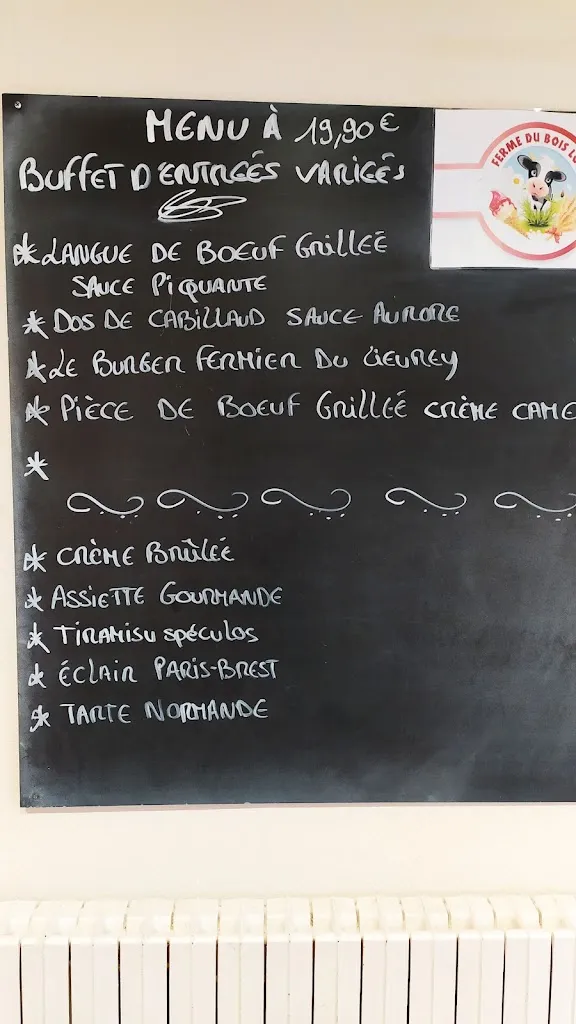 MENU À 19,90€
BUFFET D'ENTRÉES VARIÉES
FERME DU BOIS
* LANGUE DE BOEUF GRILLÉE
SAUCE PIQUANTE
* DOS DE CABILLAUD SAUCE AURORE
* LE BURGER FERMIER DU LIEUREY
* PIÈCE DE BOEUF GRILLÉE CRÈME CAME
*
* CRÈME BRÛLÉE
* ASSIETTE GOURMANDE
* TIRAMISU SPÉCULOS
* ÉCLAIR PARIS-BREST
* TARTE NORMANDE